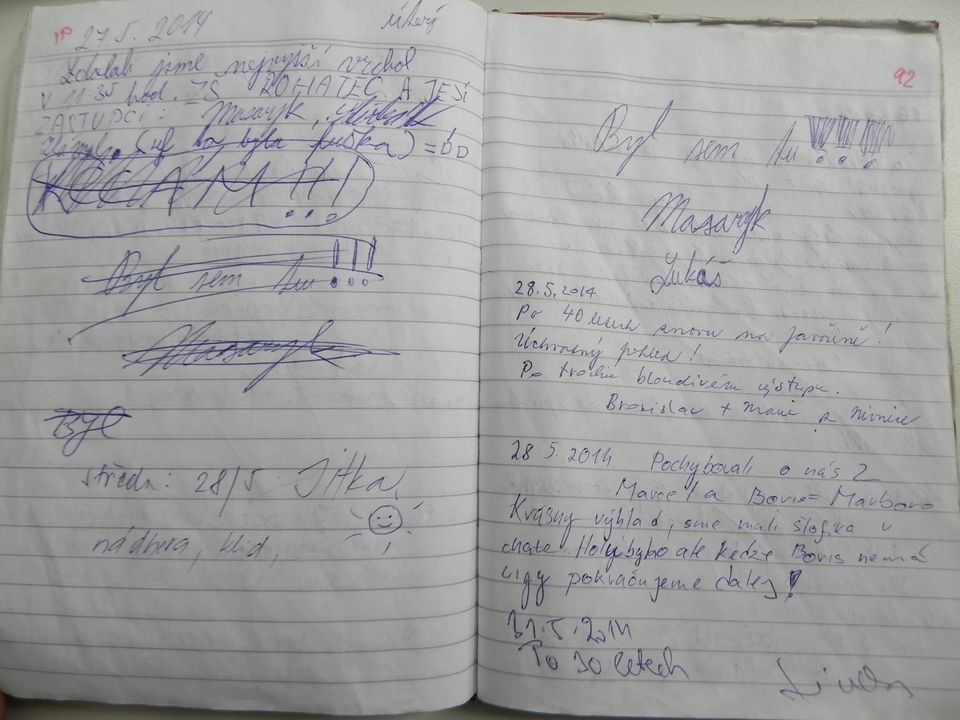 27.5.2014 Úterý
Zdolali jsme nejvyšší vrchol
v 11:35 hod. ZŠ ROHATEC A JEJÍ
ZÁSTUPCI: Masaryk,
byla fuška) = :D
Byl sem tu!!!
Masaryk
Byl
středa: 28/5 Jitka,
nádhera, klid,
92
Byl sem tu!!!
Masaryk
Lukáš
28.5.2014
Po 40 letech znovu na Javořině!
Úchvatný pohled!
Po trochu bloudivém výstupu.
Bronislav + z Nivnice
28 5. 2014 Pochybovali o nás 2
Marcel a Boris = Marboro
Krásny výhlad, sme mali šlofíka v
chate. Holy bybyo ale kedže Boris nemá
cigy pokračujeme ďalej!
31.5.2014
Po 30 letech